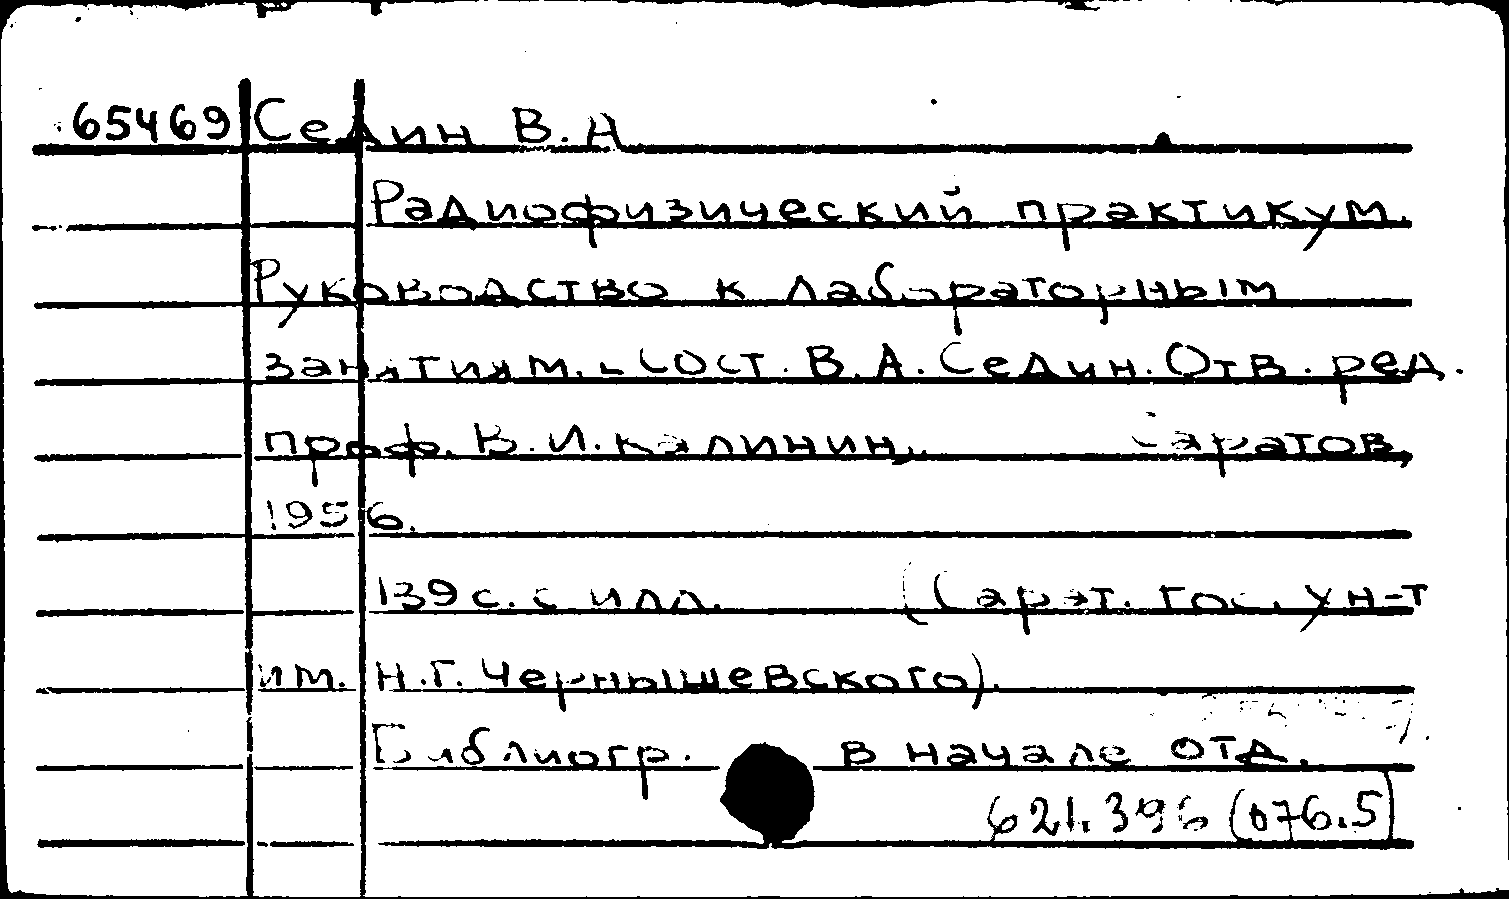 65469 Седин В. А
Радиофизический практикум.
Руководство к лабораторным
занятиям. - Сост. В. А. Седин. Отв. ред.
проф. В. И. Калинин. Саратов,
1956.
139 с. с илл. (Сарат. гос. ун-т
им. Н.Г. Чернышевского).
Библиогр. в начале отд.
621.396 (076.5)